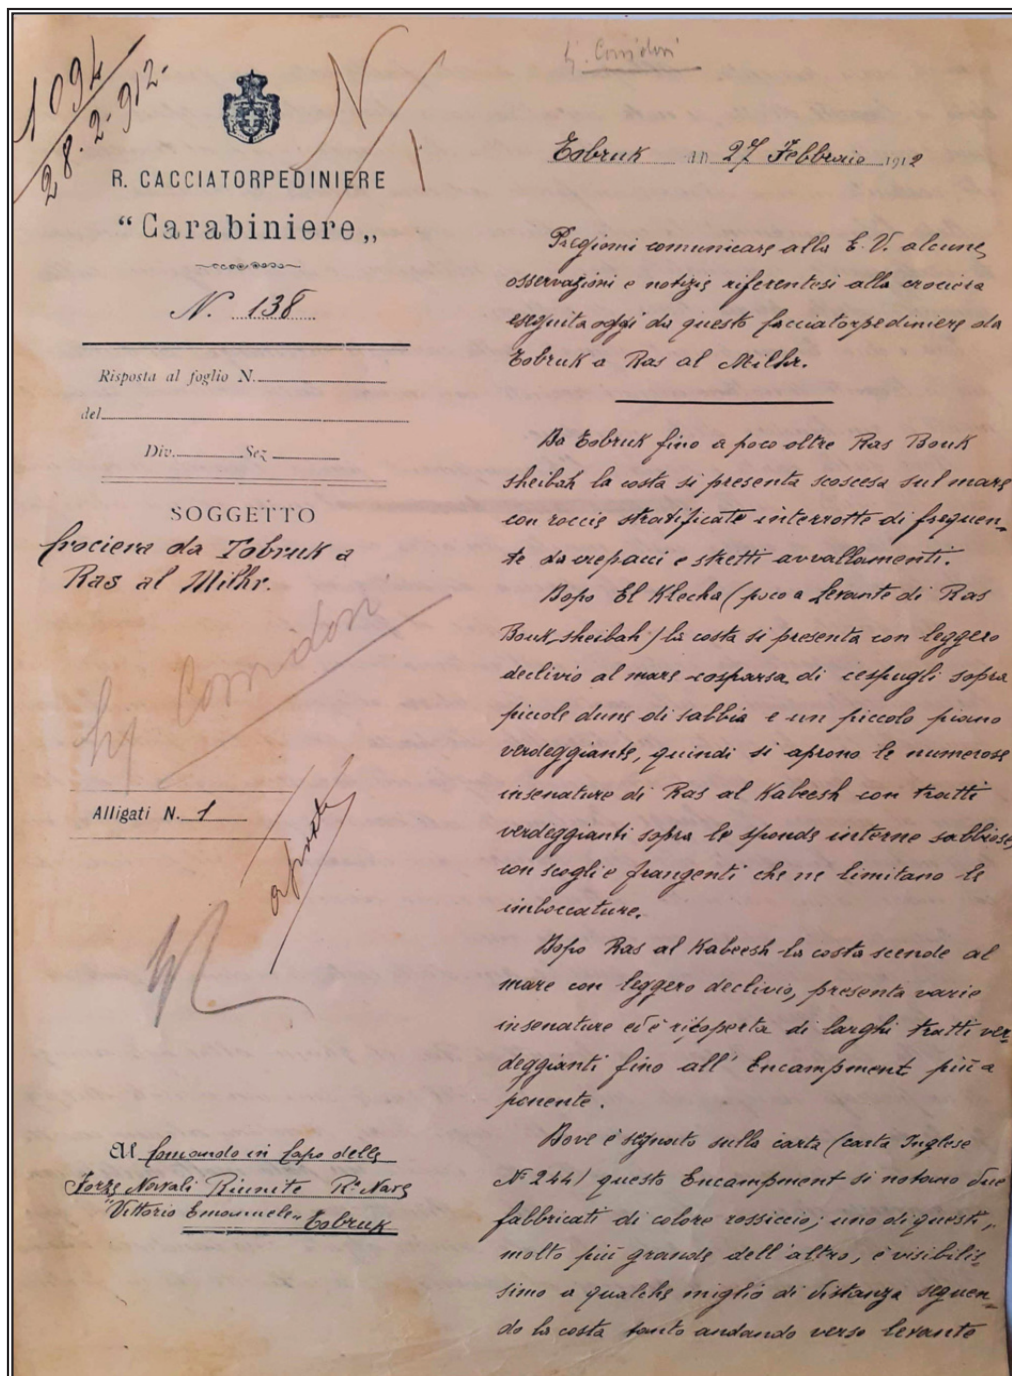 1094
28.2.912.
R. CACCIATORPEDINIERE
"Carabiniere„
N. 138
Risposta al foglio N.
del
Div. Sez
SOGGETTO
Crociera da Tobruk a
Ras al Milhr.
Alligati N. 1
Al Comando in Capo delle
Forze Navali Riunite Rª Nave
"Vittorio Emanuele„ Tobruk
Tobruk 27 Febbraio 1912
Pregiomi comunicare alla E. V. alcune
osservazioni e notizie riferentesi alla crociera
eseguita oggi da questo Cacciatorpediniere da
Tobruk a Ras al Milhr.
Da Tobruk fino a poco oltre Ras Bouk
sheibah la costa si presenta scoscesa sul mare
con roccie stratificate interrotte di frequen-
te da crepacci e stretti avvallamenti.
Dopo El Klecha (poco a Levante di Ras
Bouk sheibah) la costa si presenta con leggero
declivio al mare cosparsa di cespugli sopra
piccole dune di sabbia e un piccolo piano
verdeggiante, quindi si aprono le numerose
insenature di Ras al Kabeesh con tratti
verdeggianti sopra le sponde interne sabbiose,
con scogli e frangenti che ne limitano le
imboccature.
Dopo Ras al Kabeesh la costa scende al
mare con leggero declivio, presenta varie
insenature ed è ricoperta di larghi tratti ver-
deggianti fino all' Encampment più a
ponente.
Dove è segnato sulla carta (carta Inglese
Nº 244) questo Encampment si notano due
fabbricati di colore rossiccio; uno di questi,
molto più grande dell'altro, è visibilis-
simo a qualche miglio di distanza seguen-
do la costa tanto andando verso levante